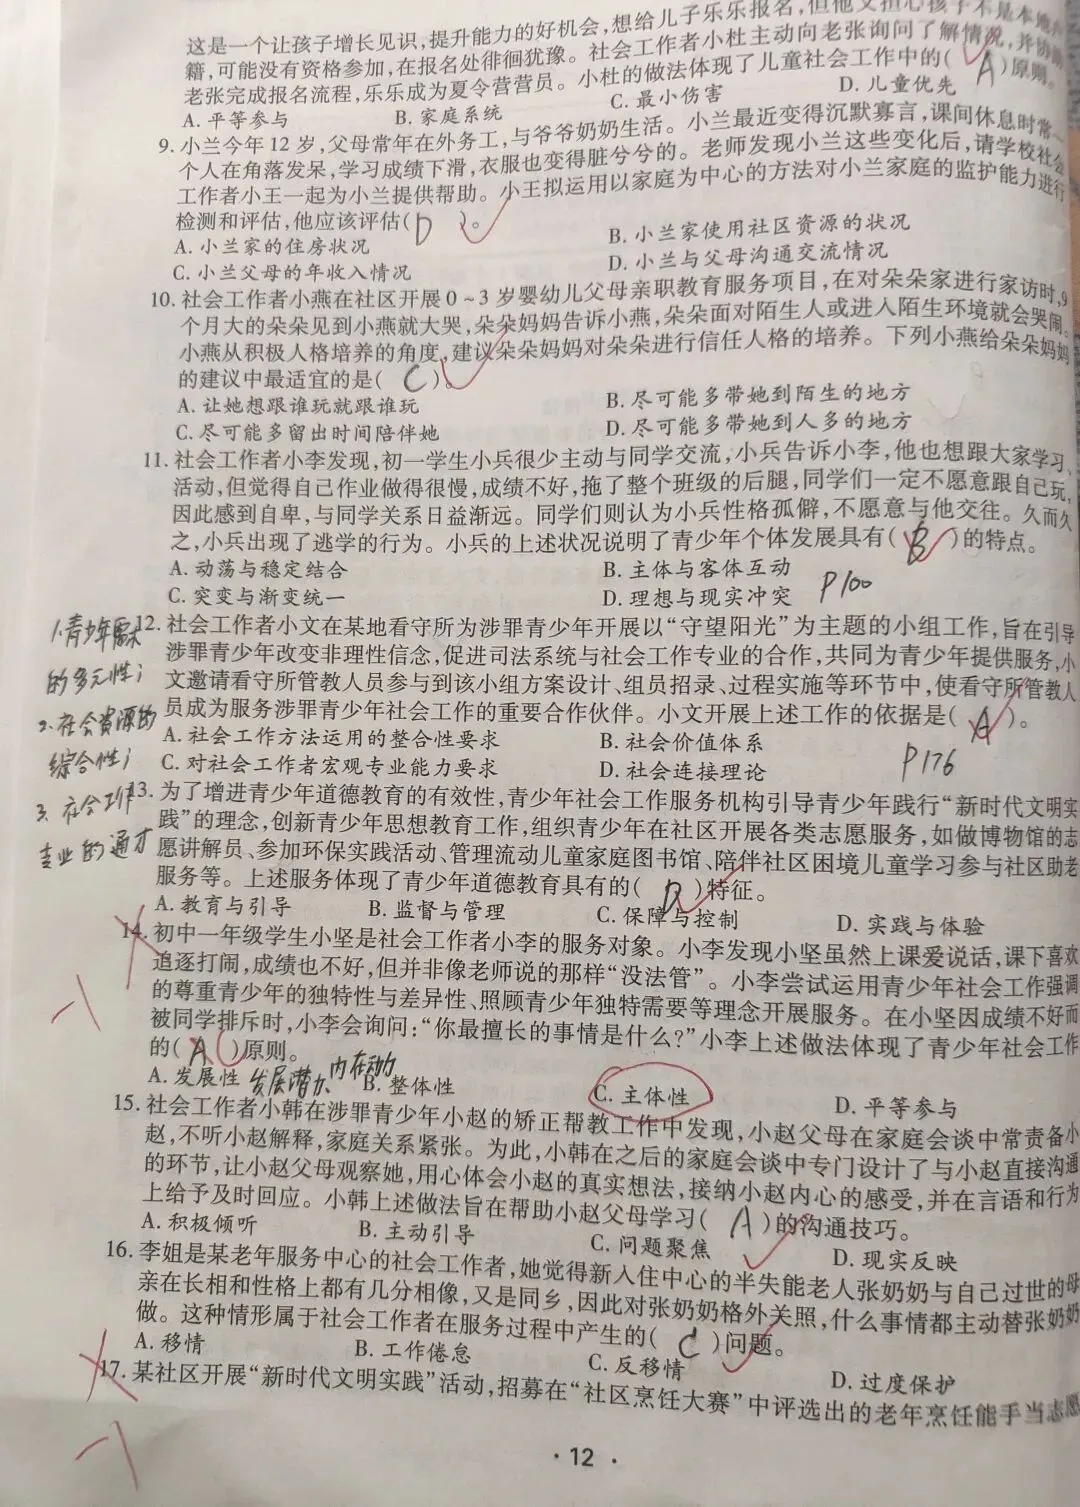 这是一个让孩子增长见识,提升能力的好机会,想给儿子乐乐报名,但他又担心孩子不是本地户
籍,可能没有资格参加,在报名处徘徊犹豫。社会工作者小杜主动向老张询问了解情况,并协助
老张完成报名流程,乐乐成为夏令营营员。小杜的做法体现了儿童社会工作中的( A )原则。
A. 平等参与 B. 家庭系统 C. 最小伤害 D. 儿童优先
9. 小兰今年 12 岁,父母常年在外务工,与爷爷奶奶生活。小兰最近变得沉默寡言,课间休息时常一
个人在角落发呆,学习成绩下滑,衣服也变得脏兮兮的。老师发现小兰这些变化后,请学校社会
工作者小王一起为小兰提供帮助。小王拟运用以家庭为中心的方法对小兰家庭的监护能力进行
检测和评估,他应该评估( D )。
A. 小兰家的住房状况 B. 小兰家使用社区资源的状况
C. 小兰父母的年收入情况 D. 小兰与父母沟通交流情况
10. 社会工作者小燕在社区开展 0~3 岁婴幼儿父母亲职教育服务项目,在对朵朵家进行家访时,9
个月大的朵朵见到小燕就大哭,朵朵妈妈告诉小燕,朵朵面对陌生人或进入陌生环境就会哭闹。
小燕从积极人格培养的角度,建议朵朵妈妈对朵朵进行信任人格的培养。下列小燕给朵朵妈妈
的建议中最适宜的是( C )。
A. 让她想跟谁玩就跟谁玩 B. 尽可能多带她到陌生的地方
C. 尽可能多留出时间陪伴她 D. 尽可能多带她到人多的地方
11. 社会工作者小李发现,初一学生小兵很少主动与同学交流,小兵告诉小李,他也想跟大家学习、
活动,但觉得自己作业做得很慢,成绩不好,拖了整个班级的后腿,同学们一定不愿意跟自己玩,
因此感到自卑,与同学关系日益渐远。同学们则认为小兵性格孤僻,不愿意与他交往。久而久
之,小兵出现了逃学的行为。小兵的上述状况说明了青少年个体发展具有( B )的特点。
A. 动荡与稳定结合 B. 主体与客体互动
C. 突变与渐变统一 D. 理想与现实冲突 P100
12. 社会工作者小文在某地看守所为涉罪青少年开展以“守望阳光”为主题的小组工作,旨在引导
涉罪青少年改变非理性信念,促进司法系统与社会工作专业的合作,共同为青少年提供服务,小
文邀请看守所管教人员参与到该小组方案设计、组员招录、过程实施等环节中,使看守所管教人
员成为服务涉罪青少年社会工作的重要合作伙伴。小文开展上述工作的依据是( A )。
A. 社会工作方法运用的整合性要求 B. 社会价值体系
C. 对社会工作者宏观专业能力要求 D. 社会连接理论 P176
1.青少年需求
的多元性;
2.社会资源的
综合性;
3.社会工作
专业的通才
13. 为了增进青少年道德教育的有效性,青少年社会工作服务机构引导青少年践行“新时代文明实
践”的理念,创新青少年思想教育工作,组织青少年在社区开展各类志愿服务,如做博物馆的志
愿讲解员、参加环保实践活动、管理流动儿童家庭图书馆、陪伴社区困境儿童学习参与社区助老
服务等。上述服务体现了青少年道德教育具有的( D )特征。
A. 教育与引导 B. 监督与管理 C. 保障与控制 D. 实践与体验
14. 初中一年级学生小坚是社会工作者小李的服务对象。小李发现小坚虽然上课爱说话,课下喜欢
追逐打闹,成绩也不好,但并非像老师说的那样“没法管”。小李尝试运用青少年社会工作强调
的尊重青少年的独特性与差异性、照顾青少年独特需要等理念开展服务。在小坚因成绩不好而
被同学排斥时,小李会询问:“你最擅长的事情是什么?”小李上述做法体现了青少年社会工作
的( A )原则。
A. 发展性 发展潜力、内在动力 B. 整体性 C. 主体性 D. 平等参与
-1
15. 社会工作者小韩在涉罪青少年小赵的矫正帮教工作中发现,小赵父母在家庭会谈中常责备小
赵,不听小赵解释,家庭关系紧张。为此,小韩在之后的家庭会谈中专门设计了与小赵直接沟通
的环节,让小赵父母观察她,用心体会小赵的真实想法,接纳小赵内心的感受,并在言语和行为
上给予及时回应。小韩上述做法旨在帮助小赵父母学习( A )的沟通技巧。
A. 积极倾听 B. 主动引导 C. 问题聚焦 D. 现实反映
16. 李姐是某老年服务中心的社会工作者,她觉得新入住中心的半失能老人张奶奶与自己过世的母
亲在长相和性格上都有几分相像,又是同乡,因此对张奶奶格外关照,什么事情都主动替张奶奶
做。这种情形属于社会工作者在服务过程中产生的( C )问题。
A. 移情 B. 工作倦怠 C. 反移情 D. 过度保护
17. 某社区开展“新时代文明实践”活动,招募在“社区烹饪大赛”中评选出的老年烹饪能手当志愿
-1
· 12 ·